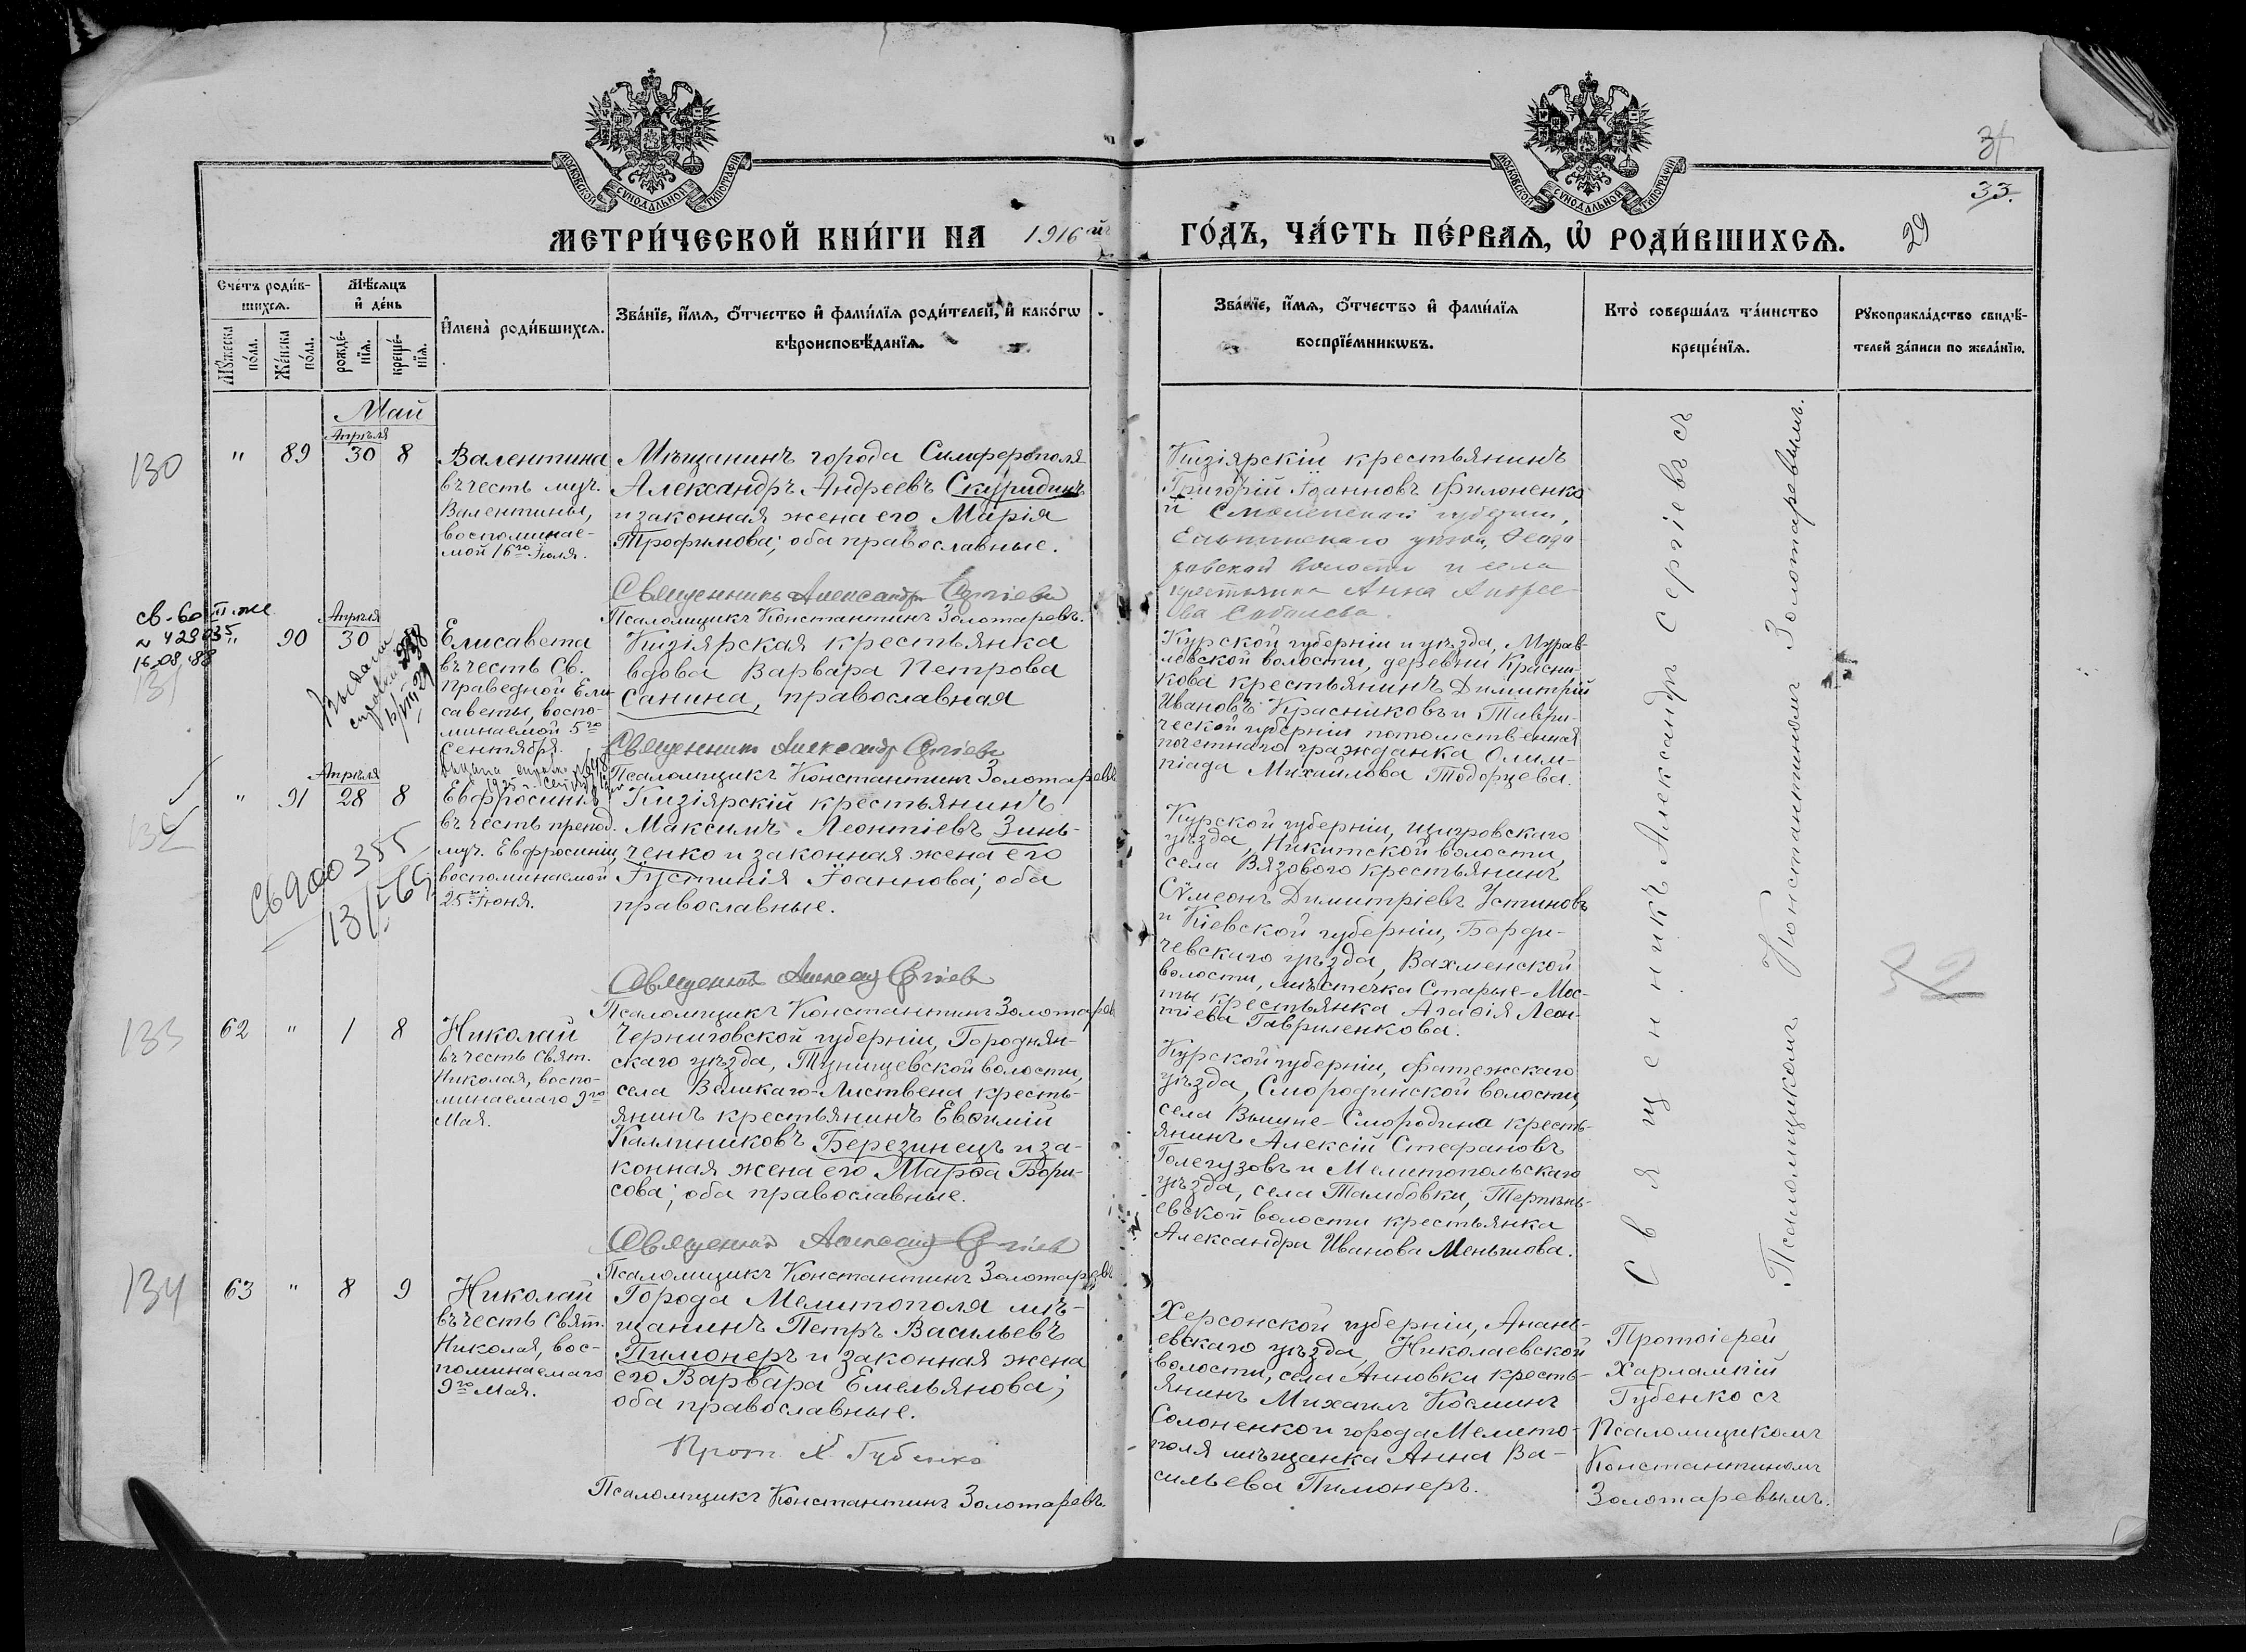 МОСКОВСКОЙ СѴНОДАЛЬНОЙ ТИПОГРАФІИ
МОСКОВСКОЙ СѴНОДАЛЬНОЙ ТИПОГРАФІИ
31
33.
МЕТРИ́ЧЕСКОЙ КНИ́ГИ НА 1916 ый
ГО́ДЪ, ЧА́СТЬ ПЕ́РВАѦ, Ѡ҆ РОДИ́ВШИХСѦ.
29
Сче́тъ роди́в-
шихсѧ.
Мꙋ́жеска
по́ла.
Же́нска
по́ла.
Мѣ́сѧцъ
и҆ де́нь
рожде́-
нїѧ.
креще́-
нїѧ.
И҆мена̀ роди́вшихсѧ.
Зва́нїе, и҆́мѧ, ѻ҆́тчество и҆ фами́лїѧ роди́телей, и҆ како́гѡ
вѣроисповѣ́данїѧ.
Зва́нїе, и҆́мѧ, ѻ҆́тчество и҆ фами́лїѧ
воспрїе́мникѡвъ.
Кто̀ соверша́лъ та́инство
креще́нїѧ.
Рꙋкоприкла́дство свидѣ́-
телей за́писи по жела́нїю.
Май
130
"
89
Апрѣля
30
8
Валентина
въ честь муч.
Валентины,
воспоминае-
мой 16го Іюля.
Мѣщанинъ города Симферополя
Александръ Андреевъ Скуридинъ
и законная жена его Марія
Трофимова; оба православные.
Священникъ Александръ Сергіевъ
Псаломщикъ Константинъ Золотаревъ.
Кизіярскій крестьянинъ
Григорій Іоанновъ Филоненко
и Смоленской губерніи,
волости и села
крестьянка Анна Андрее-
ва
св-во II-же
~ 423035
16.08.88
131
"
90
Апрѣля
30
Елисавета
въ честь Св.
Праведной Ели-
саветы, воспо-
минаемой 5го
Сентября.
Кизіярская крестьянка
вдова Варвара Петрова
Санина, православная
Священникъ Александръ Сергіевъ
Псаломщикъ Константинъ Золотаревъ
Курской губерніи и уѣзда, Мурав-
левской волости, деревни Красни-
кова крестьянинъ Димитрій
Ивановъ Красниковъ и Таври-
ческой губерніи потомственная
почетнаго гражданка Олим-
піада Михайлова Тодорцева.
132
"
91
Апрѣля
28
8
Евфросинія
въ честь препод.
муч. Евфросиніи,
воспоминаемой
25го Іюня.
Св 900355
13/I-65
Кизіярскій крестьянинъ
Максимъ Леонтіевъ Зинь-
ченко и законная жена его
Іустинія Іоаннова; оба
православные.
Священникъ Александръ Сергіевъ
Псаломщикъ Константинъ Золотаревъ
Курской губерніи, Щигровскаго
уѣзда, Никитской волости,
села Вязового крестьянинъ
Сѵмеонъ Димитріевъ Устиновъ
и Кіевской губерніи, Берди-
чевскаго уѣзда, Вахменской
волости, мѣстечка Старые-Мос-
ты крестьянка Агафія Леон-
тіева Гавриленкова.
133
62
"
1
8
Николай
въ честь Свят.
Николая, воспо-
минаемаго 9го
Мая.
Черниговской губерніи, Городнян-
скаго уѣзда, Тупищевской волости,
села Великаго-Листвена кресть-
янинъ крестьянинъ Евѳимій
Каллиниковъ Березинецъ и за-
конная жена его Марѳа Бори-
сова; оба православные.
Священникъ Александръ Сергіевъ
Псаломщикъ Константинъ Золотаревъ
Курской губерніи, Фатежскаго
уѣзда, Смородинской волости,
села Вышне-Смородина кресть-
янинъ Алексій Стефановъ
Голегузовъ и Мелитопольскаго
уѣзда, села Тамбовки, Терпѣнь-
евской волости крестьянка
Александра Иванова Меньшова.
Священникъ Александръ Сергіевъ съ
Псаломщикомъ Константиномъ Золотаревымъ.
134
63
"
8
9
Николай
въ честь Свят.
Николая, вос-
поминаемаго
9го Мая.
Города Мелитополя мѣ-
щанинъ Петръ Васильевъ
Пимонеръ и законная жена
его Варвара Емельянова;
оба православные.
Прот. Х. Губенко
Псаломщикъ Константинъ Золотаревъ.
Херсонской губерніи, Анань-
евскаго уѣзда, Николаевской
волости, села Анновки кресть-
янинъ Михаилъ Косминъ
Солоненко и города Мелито-
поля мѣщанка Анна Ва-
сильева Пимонеръ.
Протоіерей
Харлампій
Губенко съ
Псаломщикомъ
Константиномъ
Золотаревымъ.